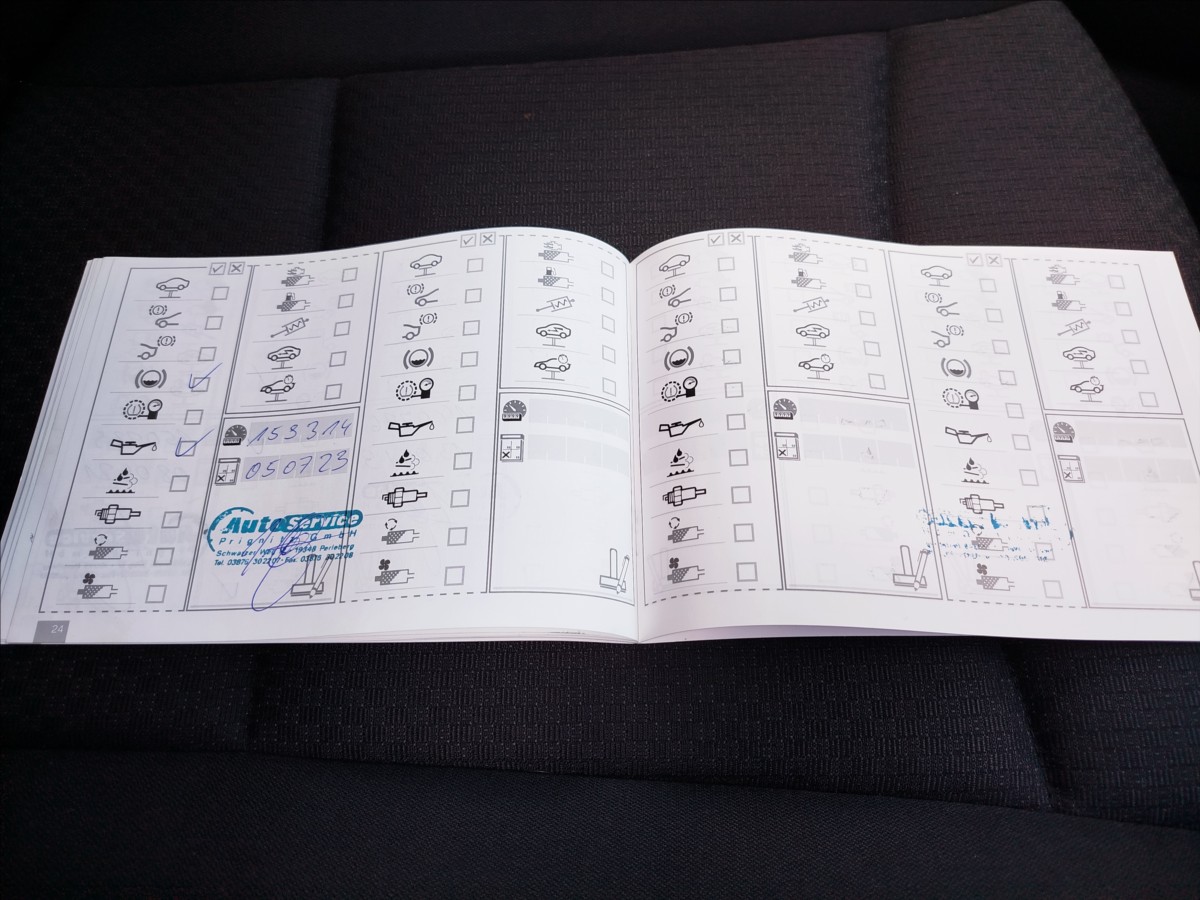 153314
05.07.23
Auto Service
Prignitz GmbH
Schwarzer Weg 19348 Perleberg
Tel. 03876 302207 · Fax. 03876 302208
24